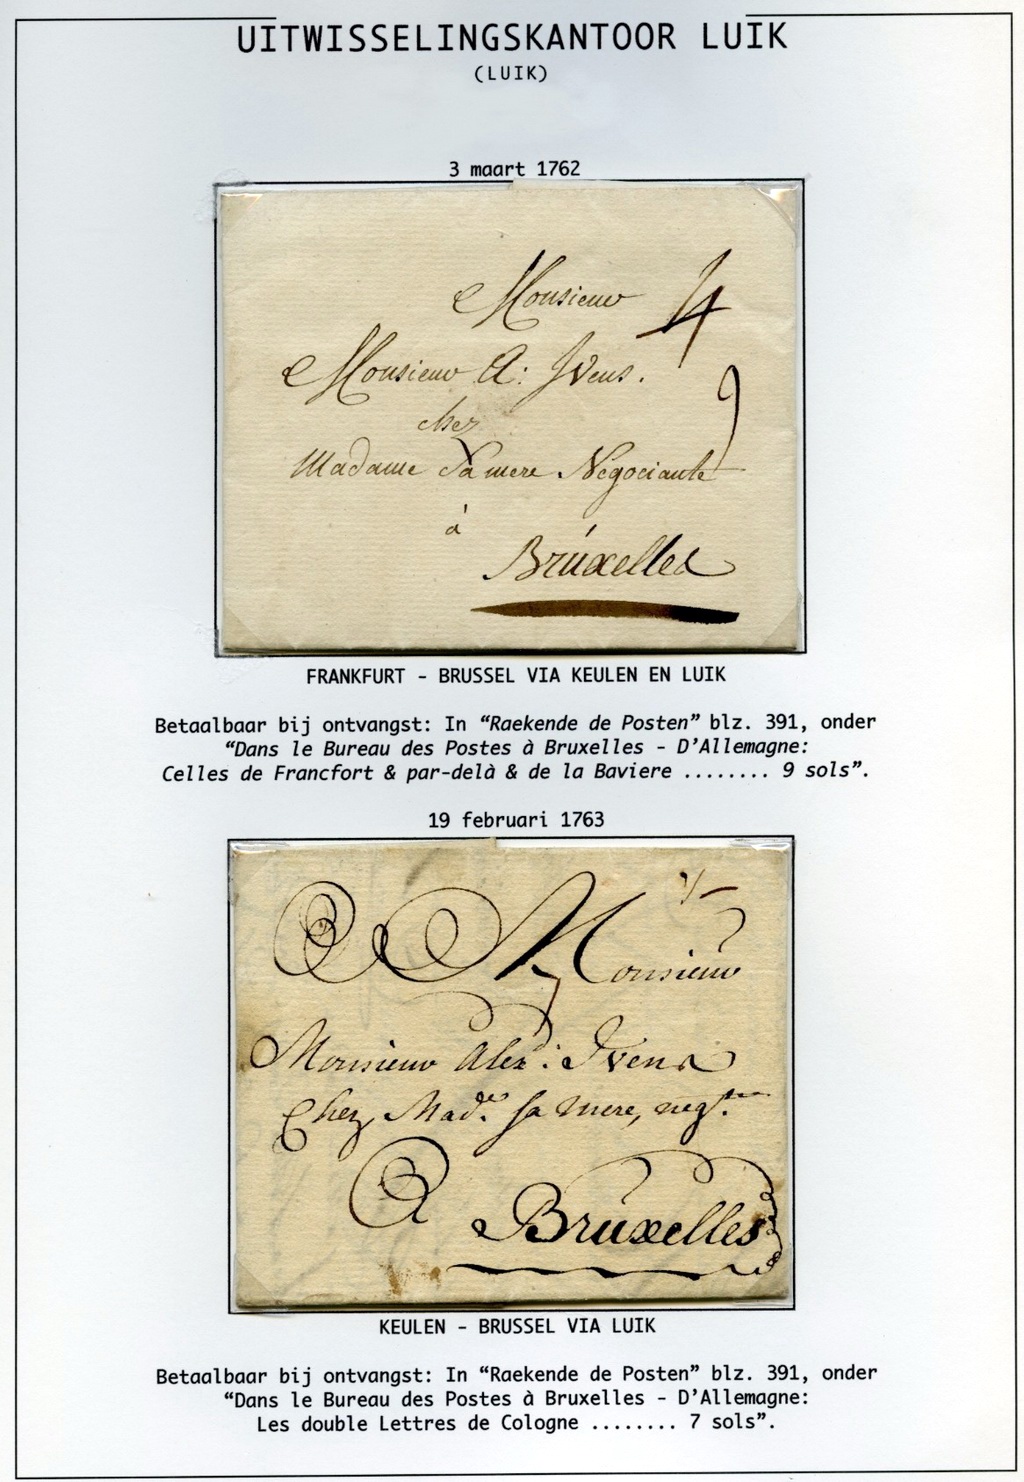 UITWISSELINGSKANTOOR LUIK
(LUIK)
3 maart 1762
Monsieur
4
Monsieur A: Ivens.
9
chez
Madame Sa mere Negociante
à
Bruxelles
FRANKFURT - BRUSSEL VIA KEULEN EN LUIK
Betaalbaar bij ontvangst: In “Raekende de Posten” blz. 391, onder
“Dans le Bureau des Postes à Bruxelles - D’Allemagne:
Celles de Francfort & par-delà & de la Baviere ........ 9 sols”.
19 februari 1763
A Monsieur
7
Monsieur Alex: Ivens
Chez Made. sa mere, negte.
A
Bruxelles
KEULEN - BRUSSEL VIA LUIK
Betaalbaar bij ontvangst: In “Raekende de Posten” blz. 391, onder
“Dans le Bureau des Postes à Bruxelles - D’Allemagne:
Les double Lettres de Cologne ........ 7 sols”.